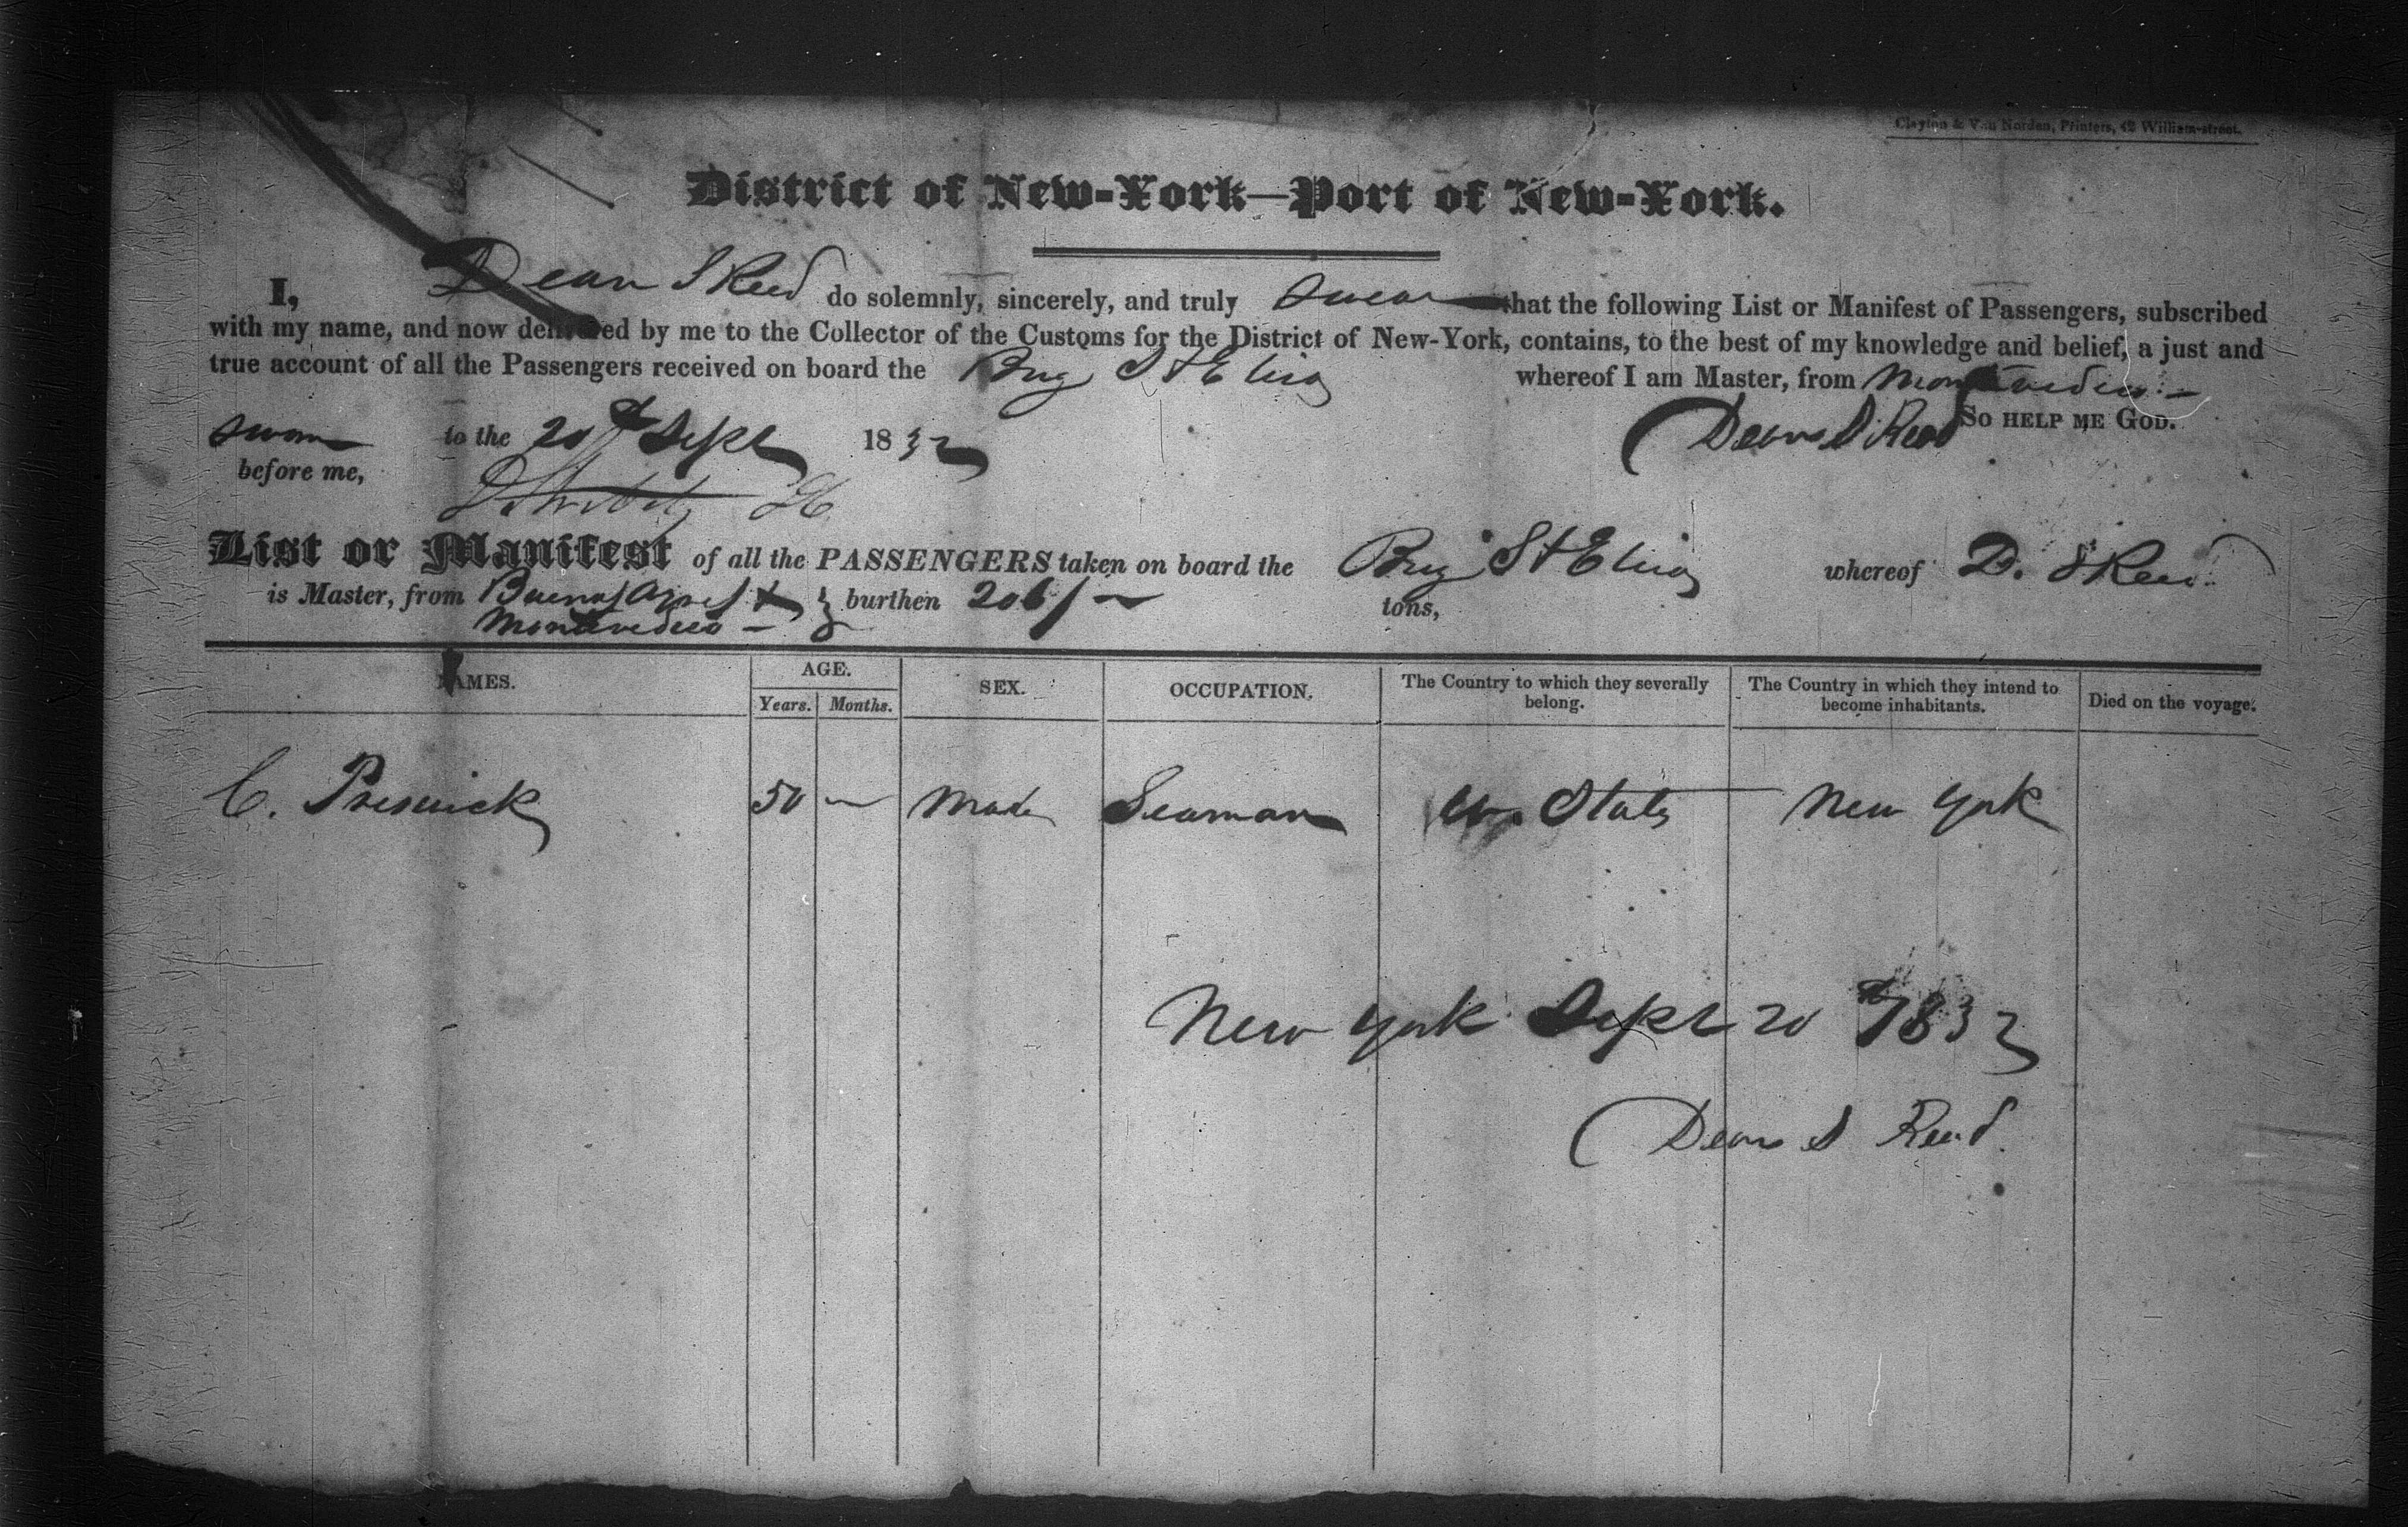 Clayton & Van Norden, Printers, 42 William-street.
District of New-York—Port of New-York.
I, Dean S Reed do solemnly, sincerely, and truly swear that the following List or Manifest of Passengers, subscribed
with my name, and now delivered by me to the Collector of the Customs for the District of New-York, contains, to the best of my knowledge and belief, a just and
true account of all the Passengers received on board the Brig St Elias whereof I am Master, from Montevideo —
So help me God.
sworn to the 20th Sept 1832 Dean S Reed
before me,
List or Manifest of all the PASSENGERS taken on board the Brig St Elias whereof D. S Reed
is Master, from Buenos Ayres & burthen 206/ — tons,
Montevideo —
NAMES. AGE. SEX. OCCUPATION. The Country to which they severally belong. The Country in which they intend to become inhabitants. Died on the voyage.
Years. Months.
C. Preswick 50 — Male Seaman U. States New York
New York Sept 20th 1832
Dean S Reed.